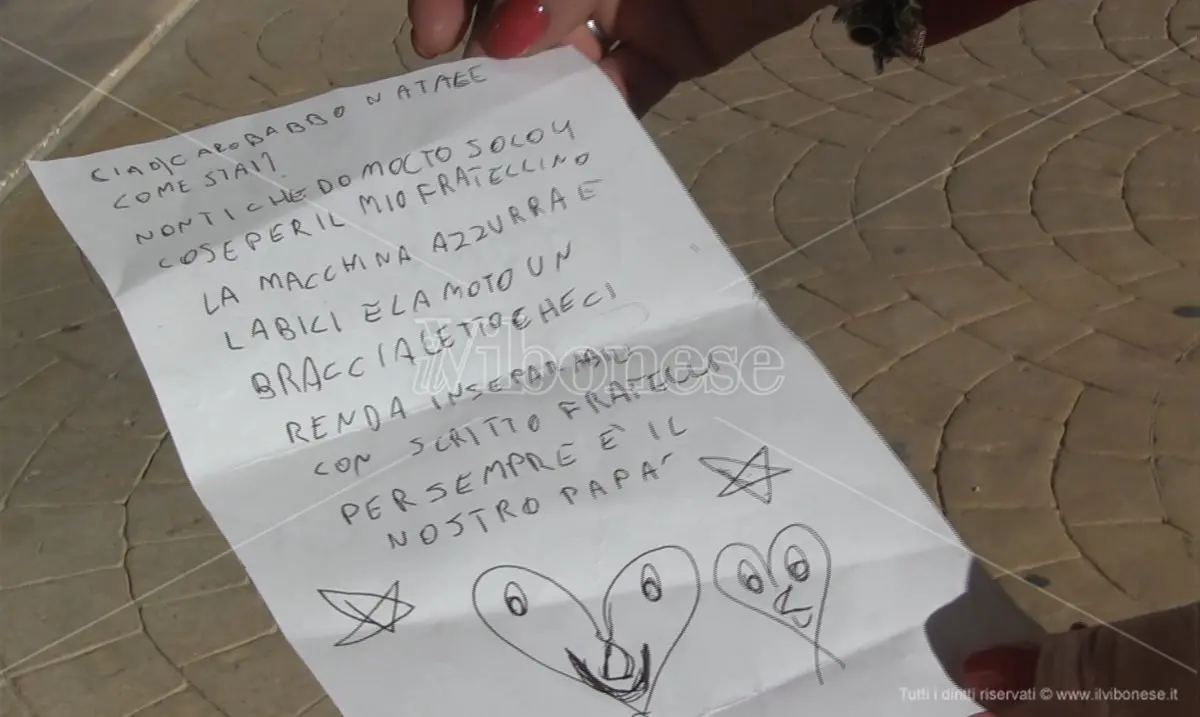 CIAO CARO BABBO NATALE
COME STAI?
NON TI CHEDO MOLTO SOLO 4
COSE PER IL MIO FRATELLINO
LA MACCHINA AZZURRA E
LA BICI E LA MOTO UN
BRACCIALETTO CHE CI
RENDA INSEPARABILI
CON SCRITTO FRATELLI
PER SEMPRE E' IL
NOSTRO PAPA'
ilVibonese
Tutti i diritti riservati © www.ilvibonese.it